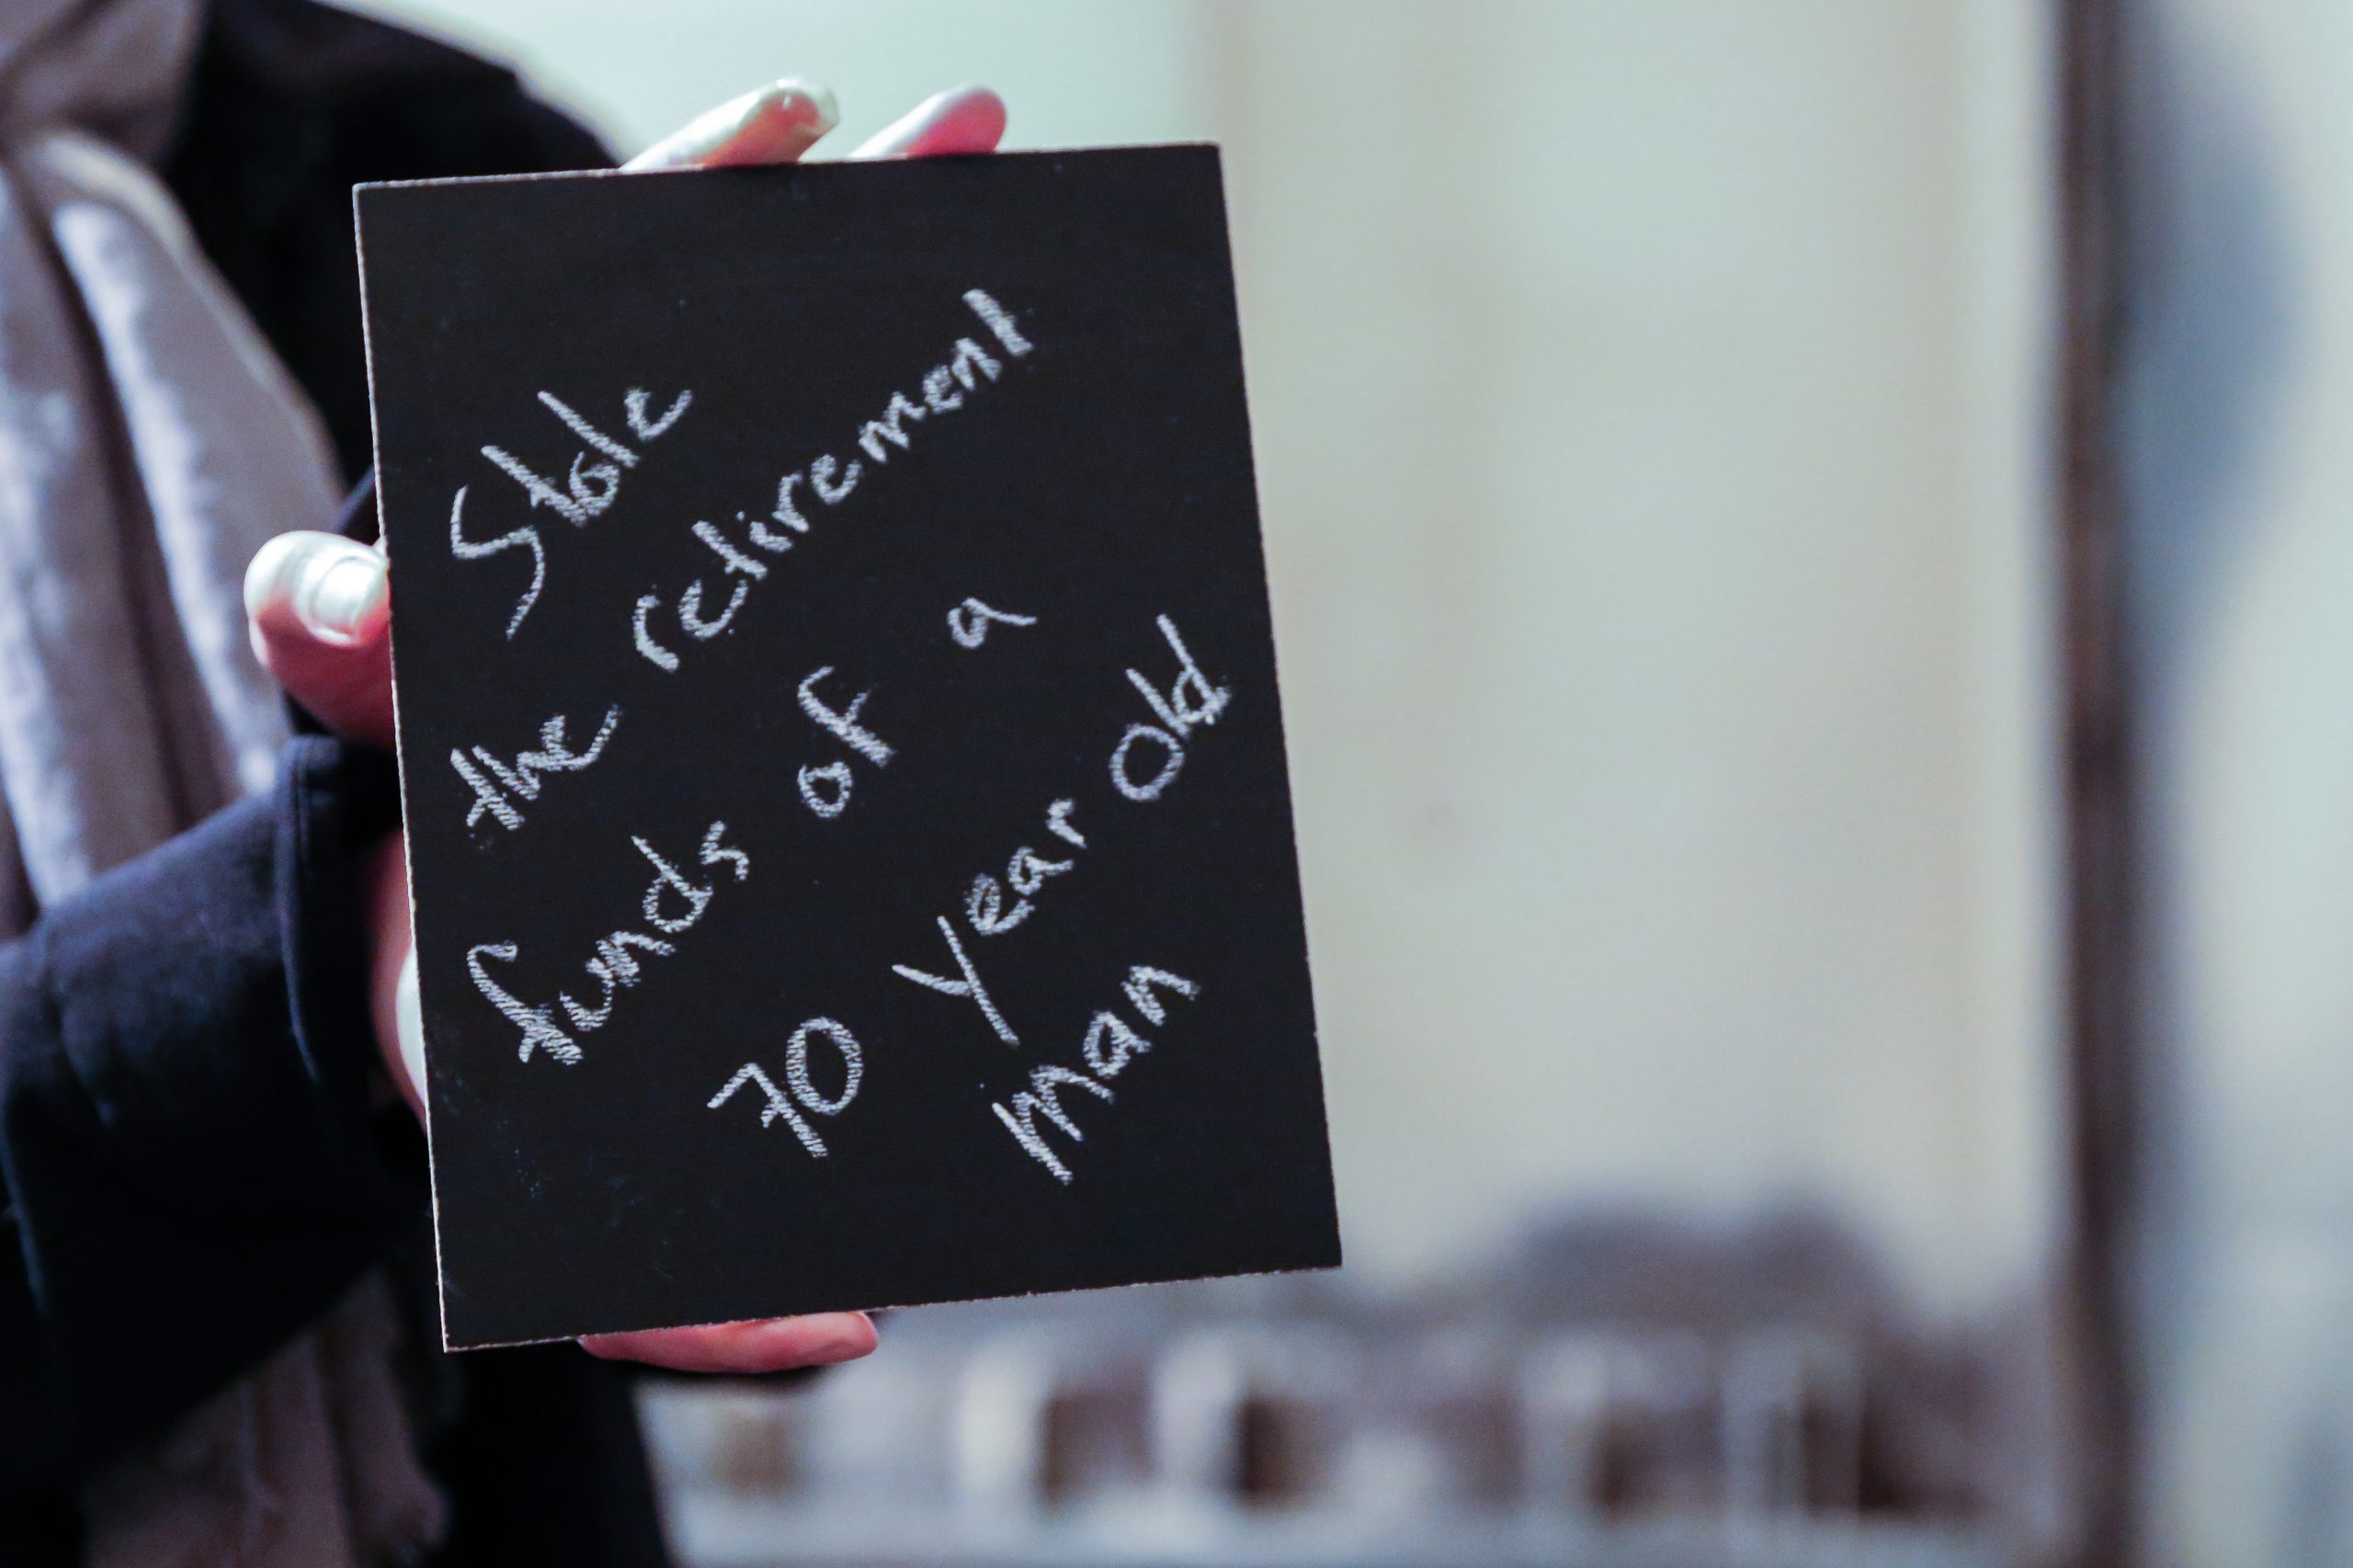 Stole
the retirement
funds of a
70 Year Old
Man